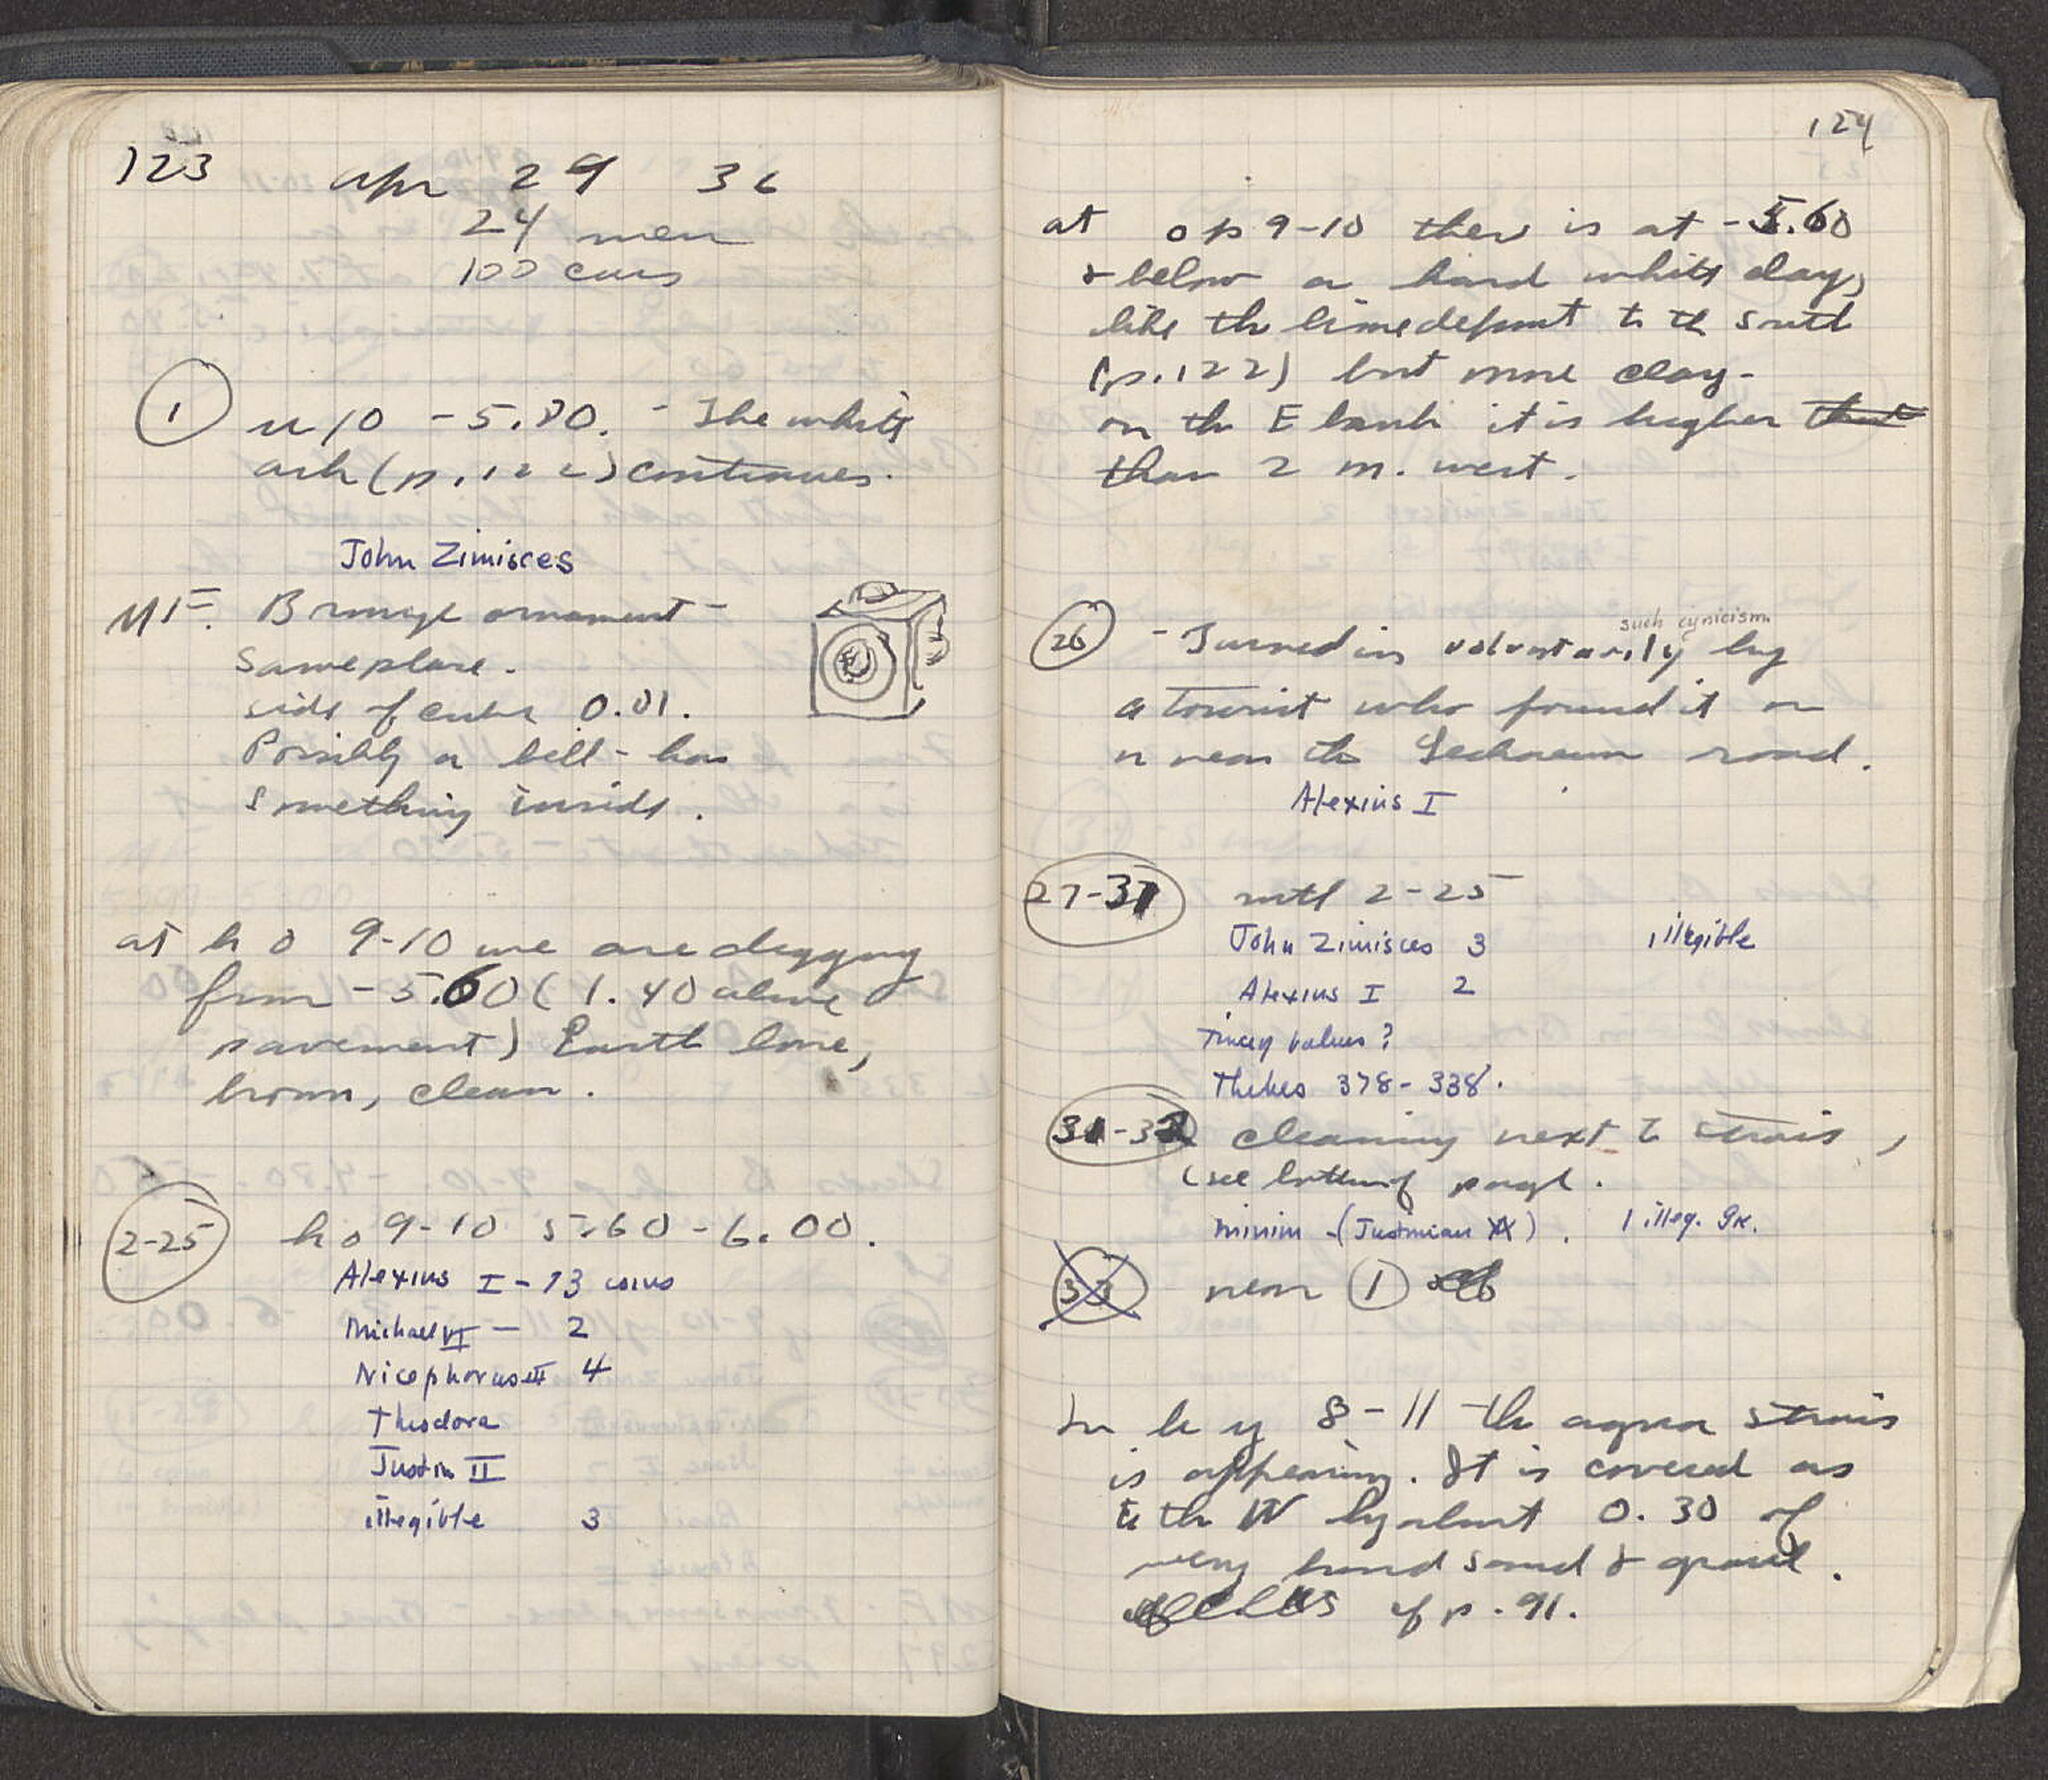 123 Apr 29 36
24 men
100 cars
1 n/o -5.80. - The white
ash (p. 122) continues.
John Zimisces
MF. Bronze ornament -
same place.
side of cube 0.01.
Possibly a bell - has
something inside.
at h o 9-10 we are digging
from -5.60 (1.40 above
pavement) Earth lime,
brown, clean.
2-25 h o 9-10 5.60-6.00.
Alexius I - 13 coins
Michael VI - 2
Nicephorus III 4
Theodora
Justin II
illegible 3
124
at op 9-10 there is at -5.60
& below a hard white clay,
like the lime deposit to the south
(p. 122) but more clay -
on the E bank it is higher that
than 2 m. west.
such cynicism.
26 - Turned in voluntarily by
a tourist who found it on
or near the Lechaeum road.
Alexius I
27-31 with 2-25
John Zimisces 3 1 illegible
Alexius I 2
values?
Thebes 378-338.
31-32 cleaning next to stairs,
(see bottom of page.
minim - (Justinian) . 1 illeg. Gk.
33 near 1
In h y 8-11 the agora stairs
is appearing. It is covered as
to the W by about 0.30 of
very hard sand & gravel.
cf p. 91.